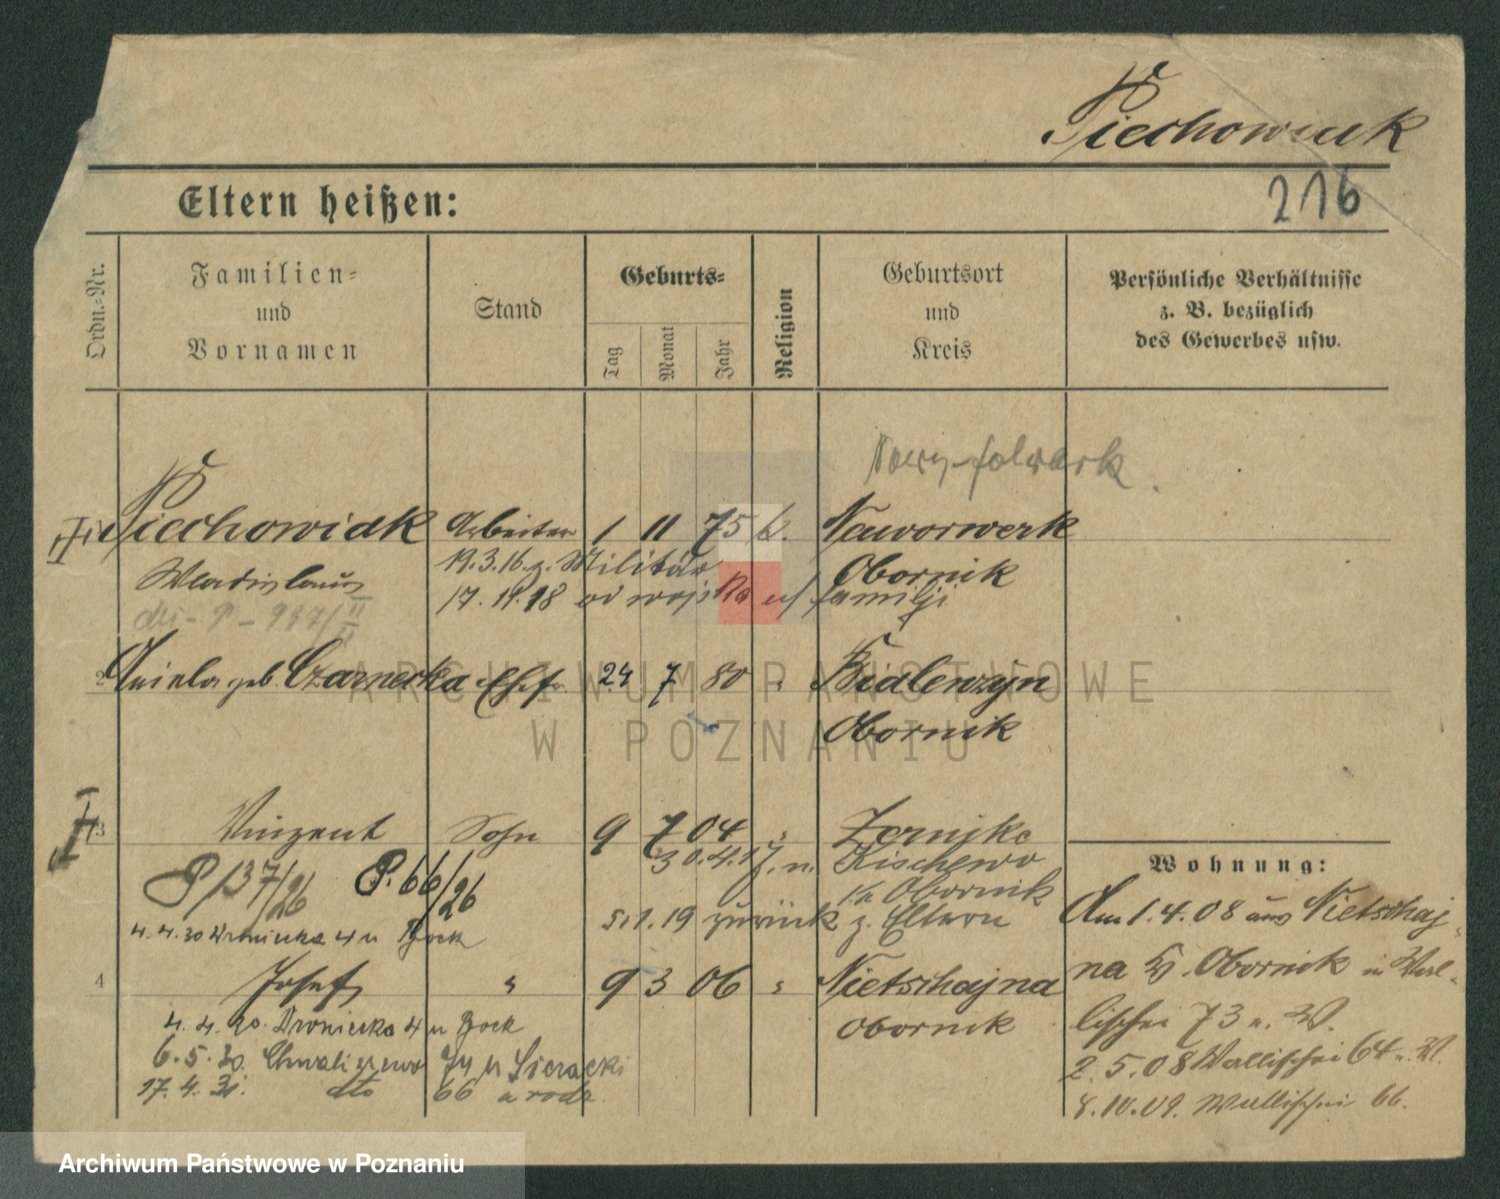 Piechowiak
216
Eltern heißen:
Ordn.-Nr.
Familien-
und
Vornamen
Stand
Geburts-
Tag
Monat
Jahr
Religion
Geburtsort
und
Kreis
Persönliche Verhältnisse
z. B. bezüglich
des Gewerbes usw.
Nowy-folwark.
Piechowiak Arbeiter 1 11 75 k. Neuvorwerk
19.3.16. z. Militär Obornik
Wladislaus
17. 11. 18 od wojska familji
2 geb. Czarnecka Ehefr. 24 7 80 " Bialenzyn
Obornik
3 Vinzent Sohn 9 7 04 "
30.4.17. n. Kischewo
Obornik
P 137/26 P. 66/26
5.1.19 zurück z. Eltern
4.4.30 Wroniecka 4 u Bock
4 Josef " 9 3 06 " Nietschajna
Obornik
4. 4. 30. Wroniecka 4 u Bock
6. 5. 30. Chwaliszewo u Sieracki
17. 4. 31. dto 66 u rodz.
Wohnung:
Am 1.4.08 aus Nietschaj-
na Kr. Obornik in Wal-
lischei 73 n. W.
2.5.08 Wallischei 64 n. W.
8.10.09. Wallischei 66.
ARCHIWUM PAŃSTWOWE
W POZNANIU
Archiwum Państwowe w Poznaniu